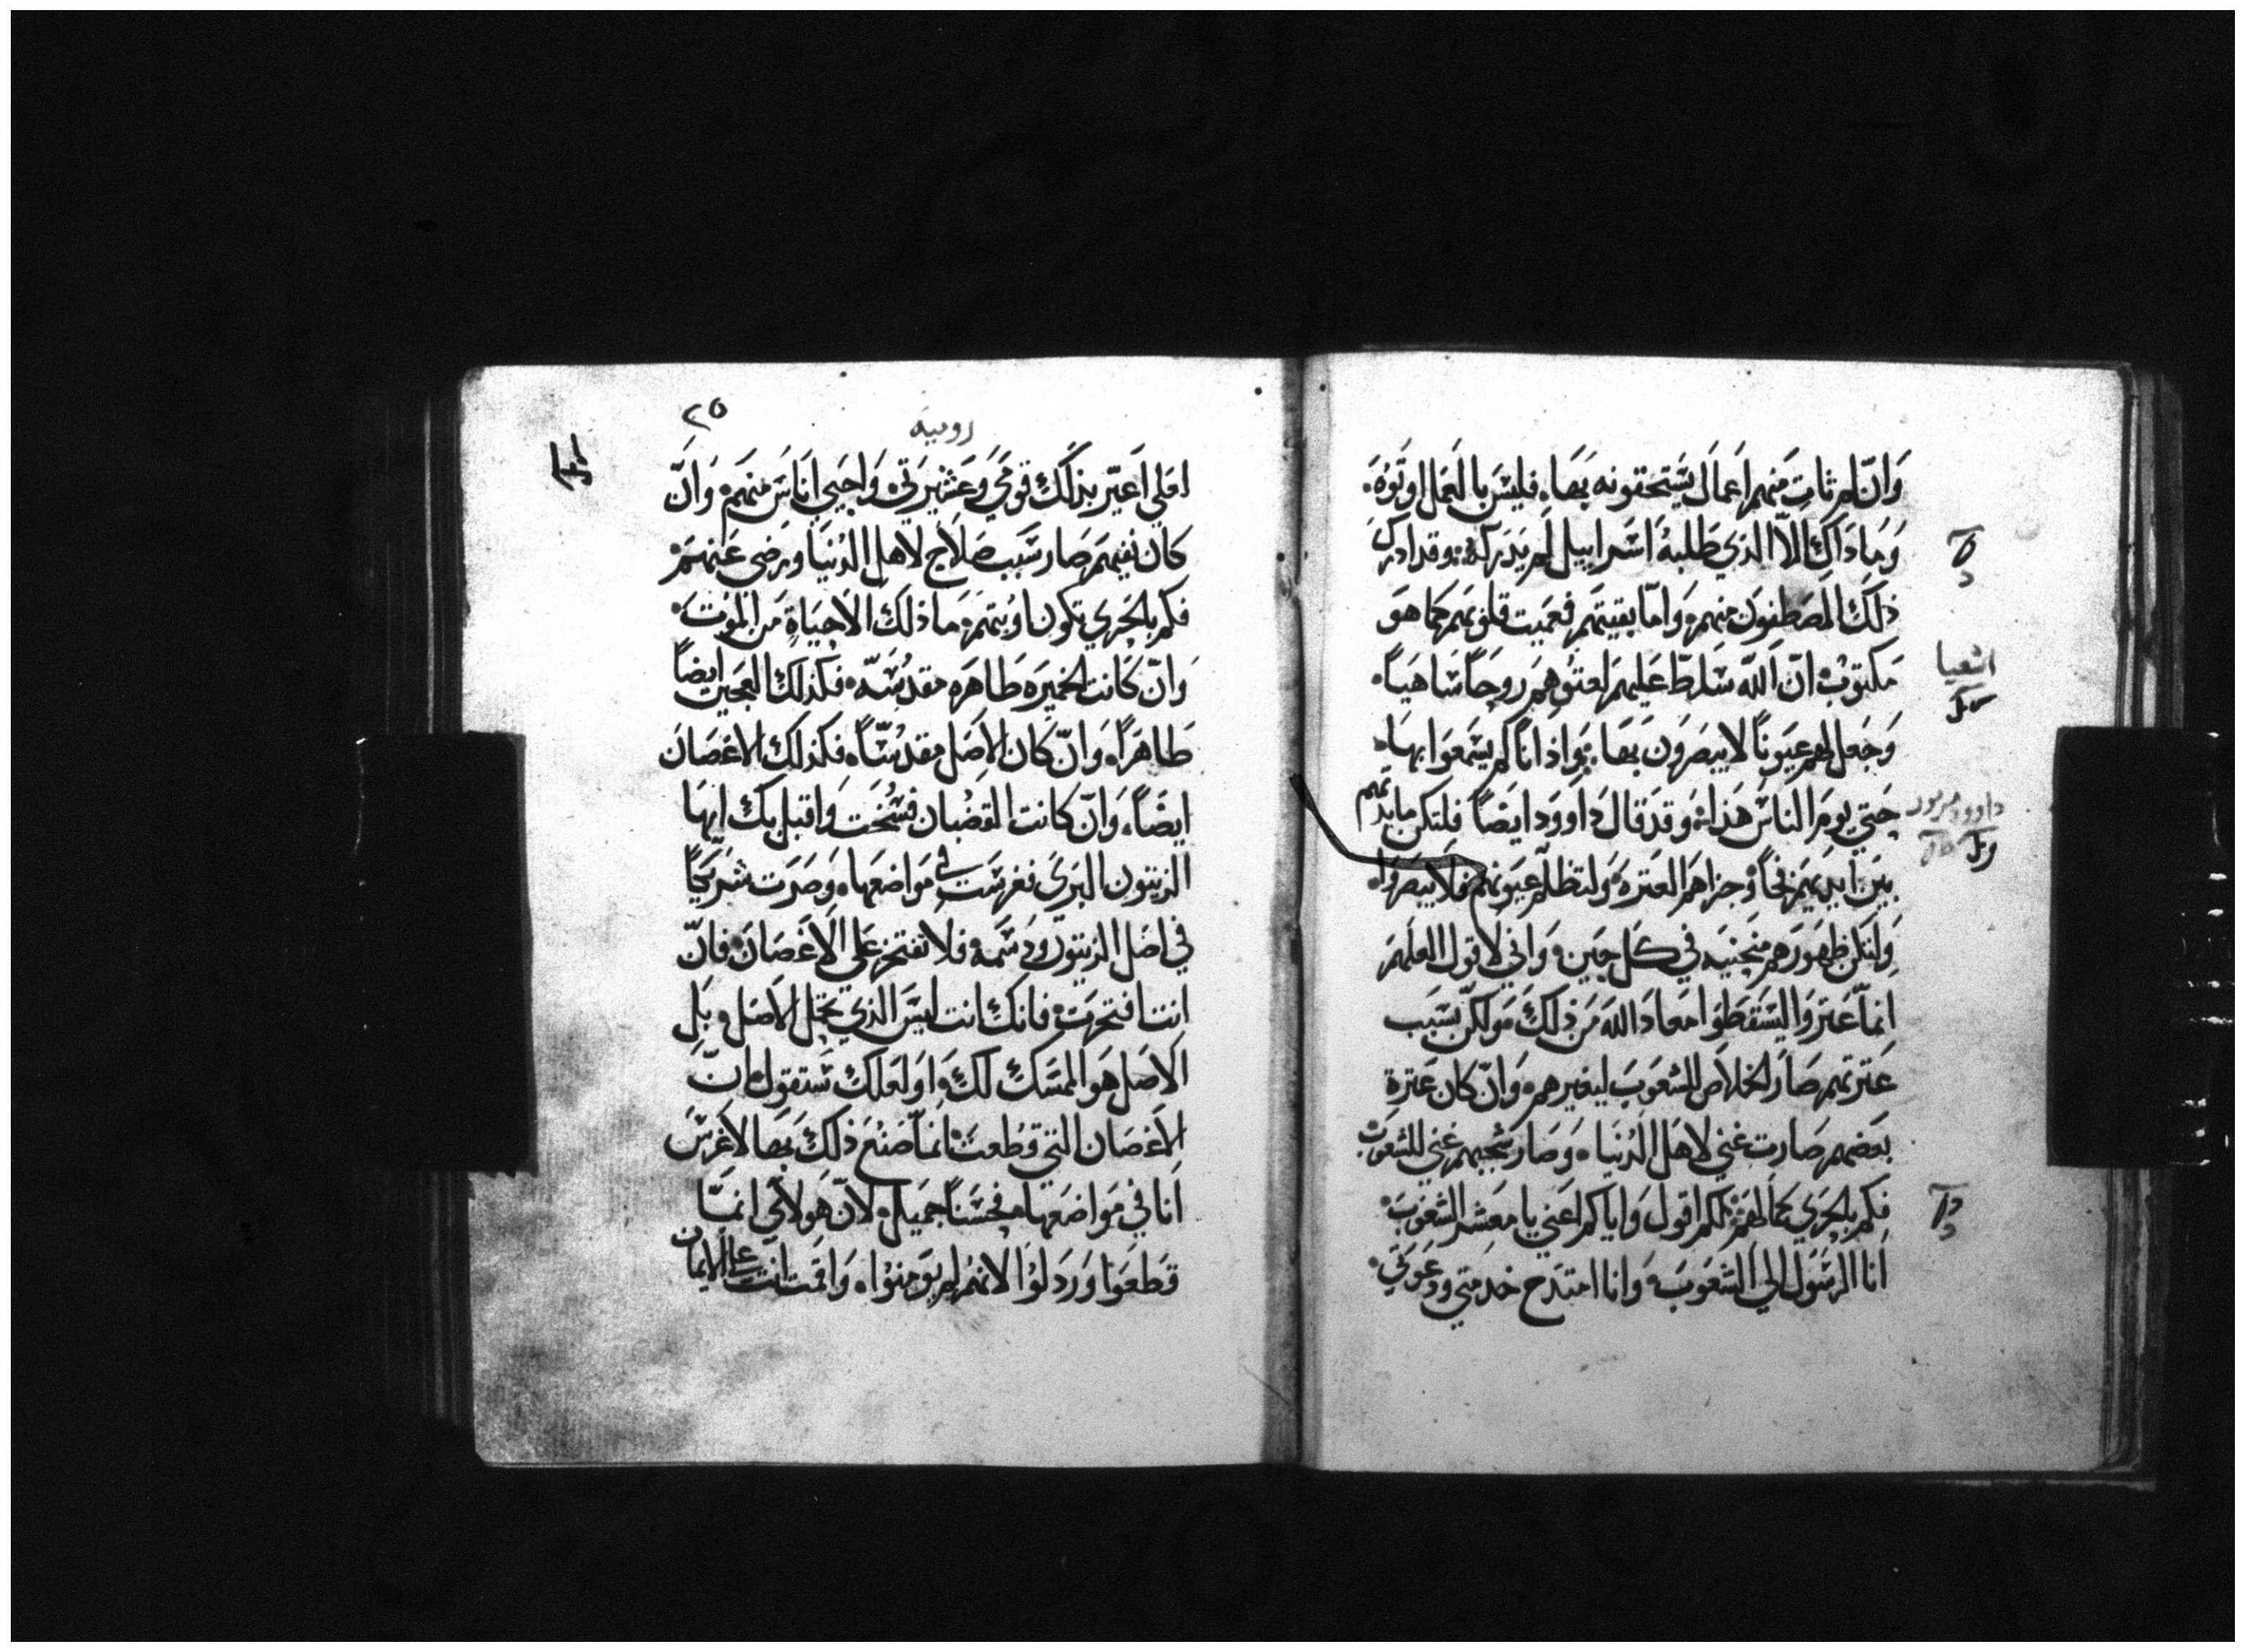 وَانّ لم ثابت منهم اعمال يستحقونه بها، فليس بالعمل اوتوه.
وَما ذاك الاّ الذي طلبهُ اسراييل لم يدركه. وقد ادرك
ذلك المصطفون منهم، وَامّا بقيتهم فعميت قلوبهم كما هو
مكتوب ان الله سلط عليهم لعتوهم روحاً ساهياً.
وَجعل لهم عيوناً لا يبصرون بها. وَاذاناً لم يسمعوا بها.
حتي يوم الناس هذا. وَقد قال داوود ايضاً فلتكن مايدتهم
بين ايديهم فخاً وجزاهم العترة وَلتظلم عيونهم فلا يبصروا.
وَلتكن ظهورهم منحنيه في كل حين. وَاني لاقول العلهم
انماّ عتروا ليسقطوا معاد الله من ذلك. وَلكن بسبب
عترتهم صار الخلاص للشعوب ليغيرهم. وَان كان عترة
بعضهم صارت غني لاهل الدنيا. وَصار شجبهم غني للشعوب
فكم بالحري كمالهم. لكم اقول وَاياكم اعني يا معشر الشعوب.
انا الرسول الي الشعوب. وَانا امتدح خدمتي ودعوتي.
اشعيا
داوود مزمور
٢٥
روميه
لعلي اعير بذلك قومي وَعشيرتي. وَاحيي اناس منهم. وَان
كان نفيهم صار سبب صلاح لاهل الدنيا ورضي عنهم.
فكم بالحري تكون اوبتهم. ما ذلك الا حياةٍ من الموت.
وَان كانت الخميره طاهره مقدسّه. فكذلك العجين ايضاً
طاهراً. وَانّ كان الاصل مقدسّاً. فكذلك الاغصان
ايضاً. وَانّ كانت القضبان فسُخت وَاقبل بك ايها
الزيتون البري فغرست في مواضعها. وَصرت شريكاً
في اصل الزيتون ودسمه. فلا تفتخر علي الاغصان. فانّ
انت افتخرت. فانك انت ليس الذي تحمل الاصل. بل
الاصل هو الممسك لك. اَو لعلك ستقول ان
الاغصان التي قطعت انماّ صنع ذلك بها لاغرس
انا في مواضعها. فحسناً جميل. لانّ هولاي انمّا
قطعوا وَردلوا لانهُم لم يومنوا. وَاقمت انت علي الايمان